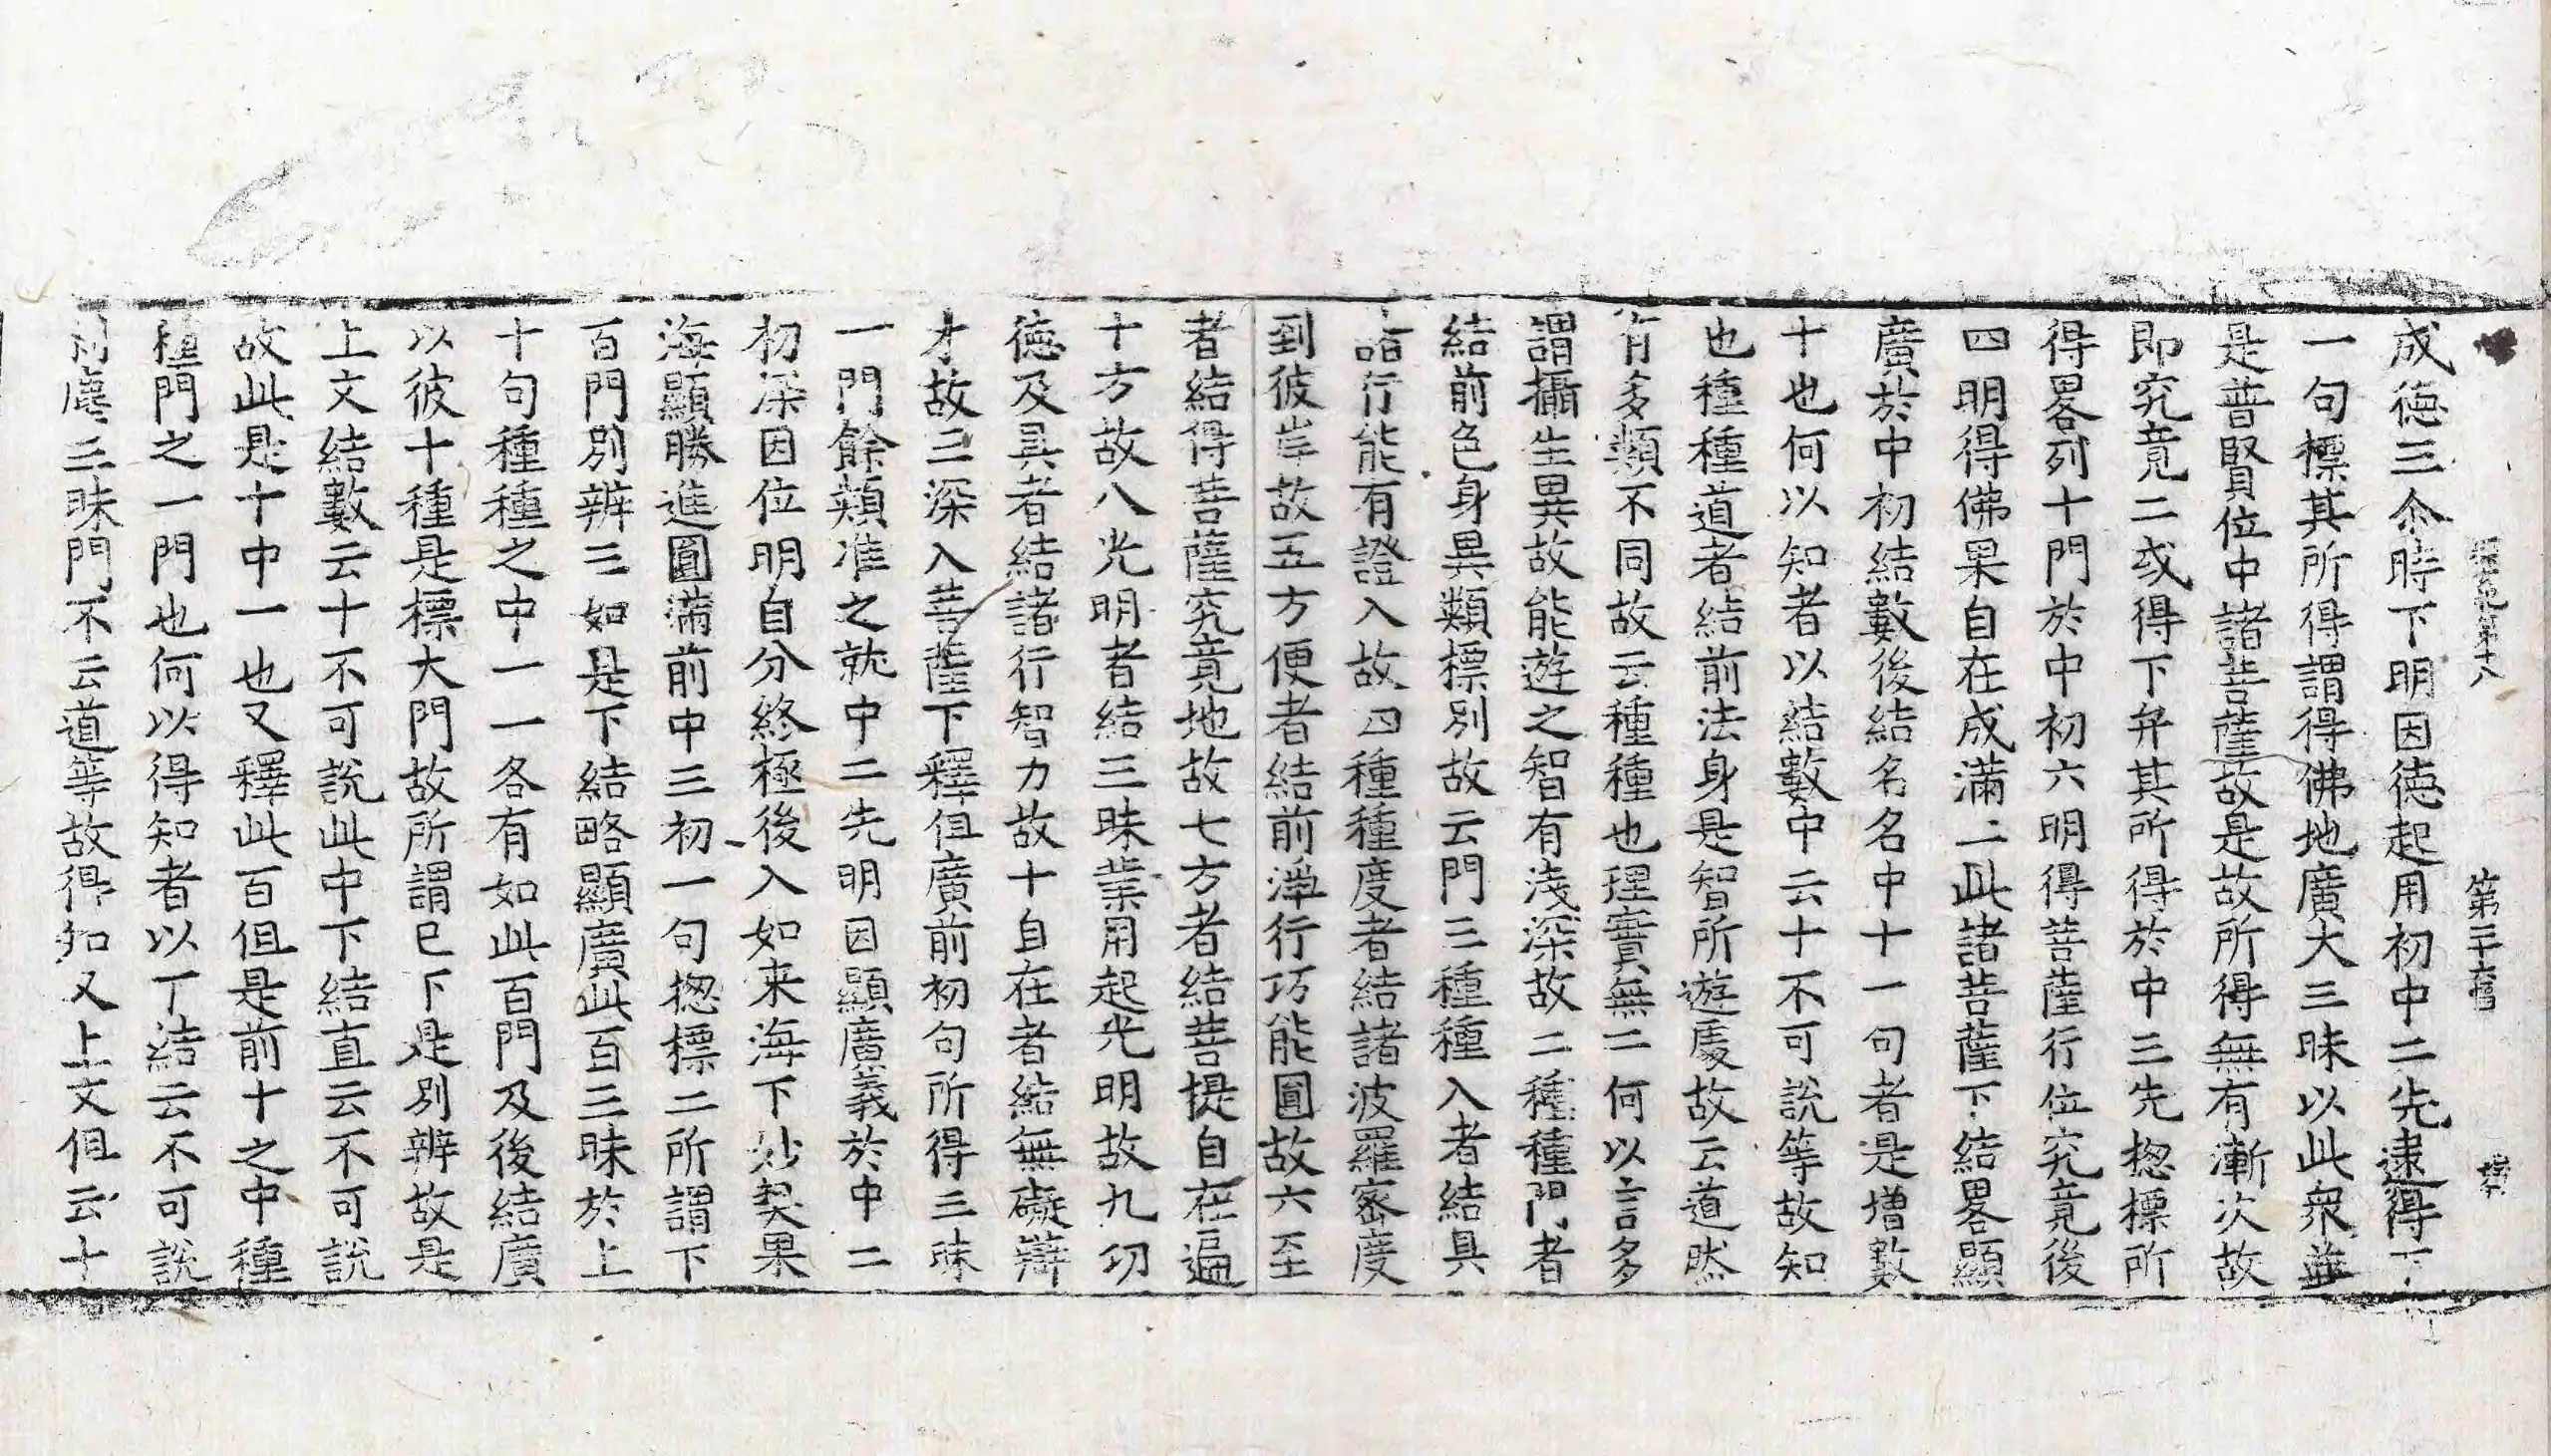 探玄記第十八 第二十六張 橫
成德三尒時下明因德起用初中二先逮得下
一句標其所得謂得佛地廣大三昧以此衆並
是普賢位中諸菩薩故是故所得無有漸次故
即究竟二或得下弁其所得於中三先揔標所
得畧列十門於中初六明得菩薩行位究竟後
四明得佛果自在成滿二此諸菩薩下結畧顯
廣於中初結數後結名名中十一句者是增數
十也何以知者以結數中云十不可說等故知
也種種道者結前法身是智所遊處故云道然
有多類不同故云種種也理實無二何以言多
謂攝生異故能遊之智有淺深故二種種門者
結前色身異類標別故云門三種種入者結具
諸行能有證入故四種種度者結諸波羅蜜度
到彼岸故五方便者結前淨行巧能圓故六至
者結得菩薩究竟地故七方者結菩提自在遍
十方故八光明者結三昧業用起光明故九切
德及具者結諸行智力故十自在者結無礙辯
才故三深入菩薩下釋但廣前初句所得三昧
一門餘類准之就中二先明因顯廣義於中二
初深因位明自分終極後入如来海下妙契果
海顯勝進圓滿前中三初一句揔標二所謂下
百門別辨三如是下結略顯廣此百三昧於上
十句種種之中一一各有如此百門及後結廣
以彼十種是標大門故所謂已下是別辨故是
上文結數云十不可說此中下結直云不可說
故此是十中一也又釋此百但是前十之中種
種門之一門也何以得知者以丁結云不可說
刹塵三昧門不云道等故得知又上文但云十